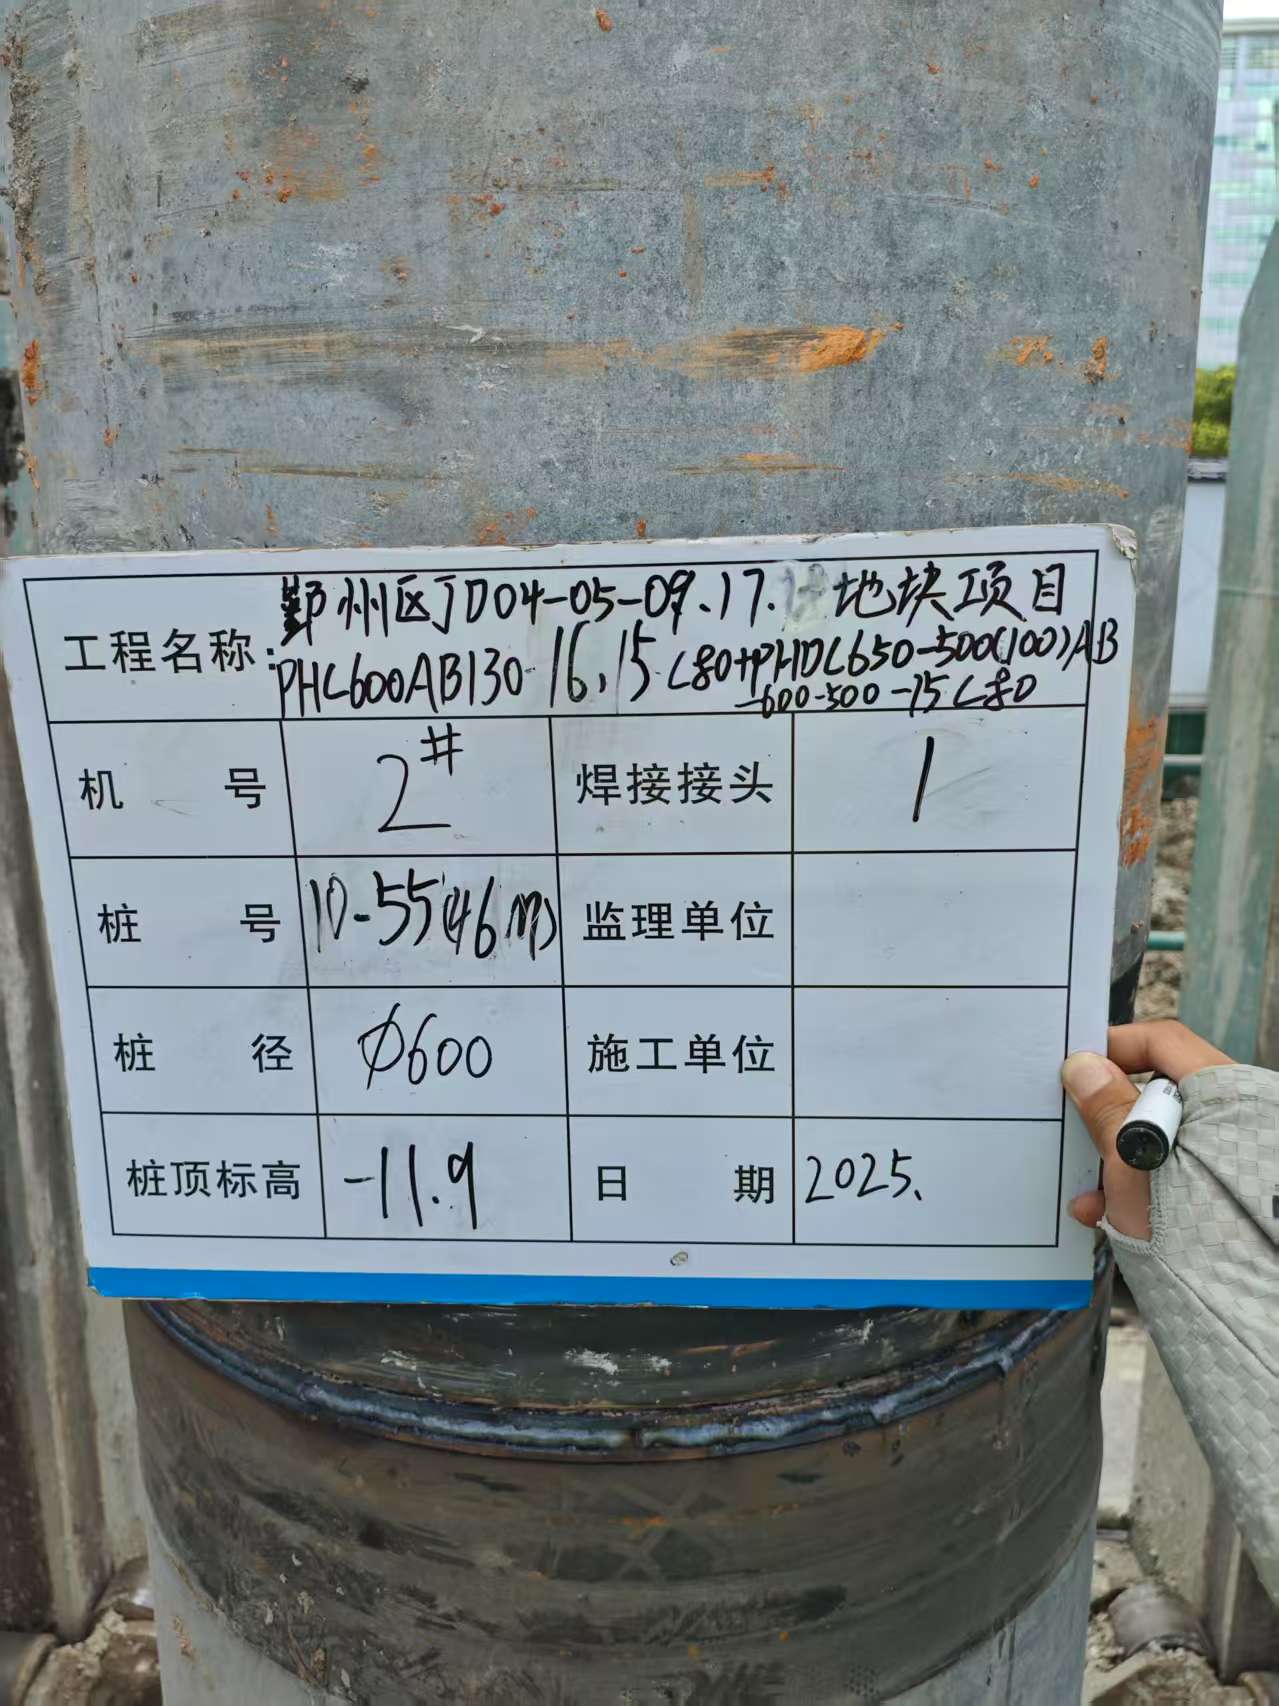 工程名称:
鄞州区JD04-05-09.17. 地块项目
PHC600AB130-16,15 C80+PHDC650-500(100)AB
-600-500-15C80
机 号 2# 焊接接头 1
桩 号 10-55(46m) 监理单位
桩 径 Φ600 施工单位
桩顶标高 -11.9 日 期 2025.